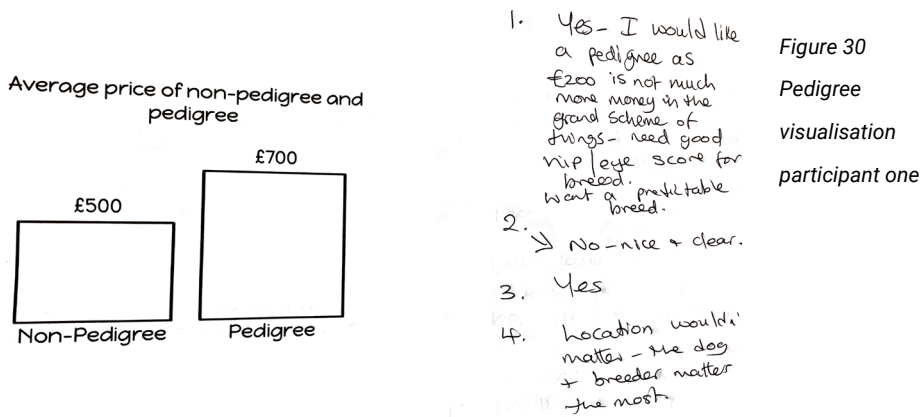 Average price of non-pedigree and
pedigree
£500
£700
Non-Pedigree
Pedigree
1. Yes - I would like
a pedigree as
£200 is not much
more money in the
grand scheme of
things - need good
hip/eye score for
breed.
Want a predictable
breed.
2.
↘ No - nice + clear.
3. Yes
4. Location wouldn'
matter - the dog
+ breeder matter
the most.
Figure 30
Pedigree
visualisation
participant one